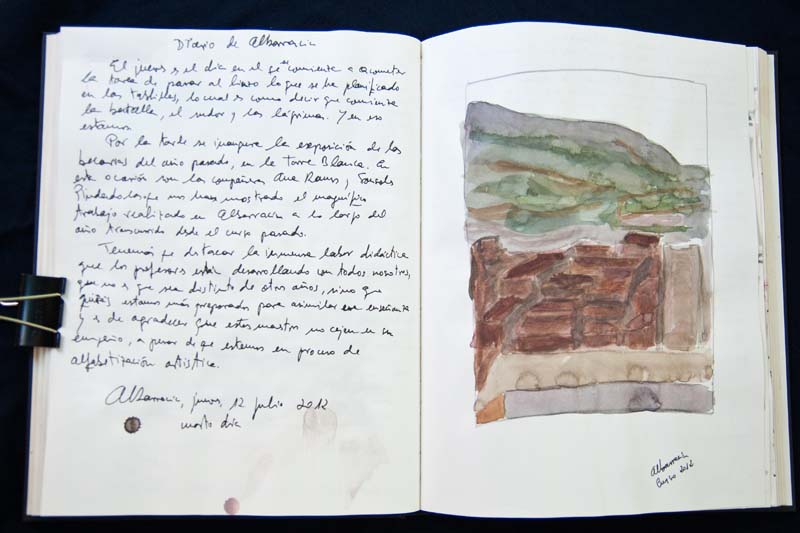 Diario de Albarracín
El jueves es el día en el qe se comienza a acometer
la tarea de pasar al lienzo lo que se ha planificado
en las tablillas, lo cual es como decir que comienza
la batalla, el sudor y las lágrimas. Y en eso
estamos.
Por la tarde se inaugura la exposición de las
becarias del año pasado, en la Torre Blanca. En
esta ocasión son las compañeras Ana Ramos y
que nos han mostrado el magnífico
trabajo realizado en Albarracín a lo largo del
año transcurrido desde el curso pasado.
Tenemos qe destacar la inmensa labor didáctica
que los profesores están desarrollando con todos nosotros,
que no es que sea distinto de otros años, sino que
quizás estamos más preparados para asimilar esa enseñanza
y es de agradecer que estos maestros no cejen en su
empeño, a pesar de qe estemos en proceso de
alfabetización artística.
Albarracín, jueves, 12 julio 2012
día
Albarracín
Curso 2012